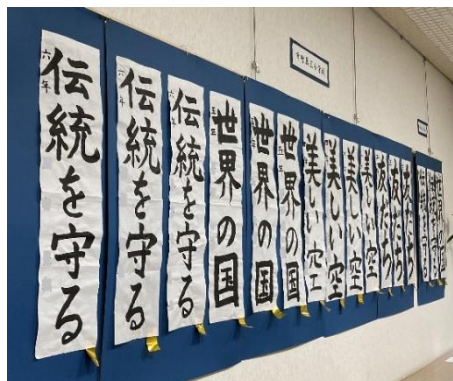 六年
伝統を守る
六年
伝統を守る
六年
伝統を守る
五年
世界の国
世界の国
世界の国
美しい空
美しい空
美しい空
美しい空
友だち
友だち
友だち
世界の国